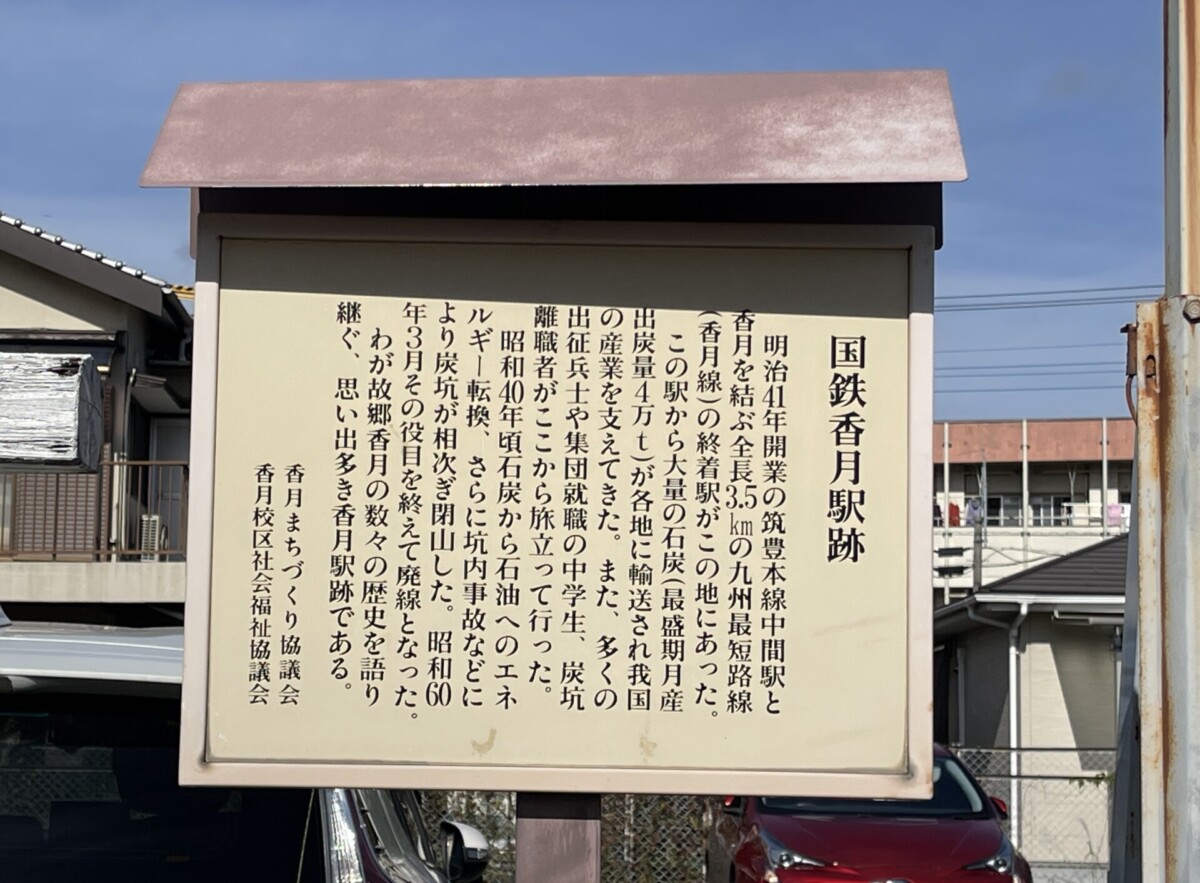 国鉄香月駅跡
明治41年開業の筑豊本線中間駅と
香月を結ぶ全長3.5㎞の九州最短路線
(香月線)の終着駅がこの地にあった。
この駅から大量の石炭(最盛期月産
出炭量4万t)が各地に輸送され我国
の産業を支えてきた。また、多くの
出征兵士や集団就職の中学生、炭坑
離職者がここから旅立って行った。
昭和40年頃石炭から石油へのエネ
ルギー転換、さらに坑内事故などに
より炭坑が相次ぎ閉山した。昭和60
年3月その役目を終えて廃線となった。
わが故郷香月の数々の歴史を語り
継ぐ、思い出多き香月駅跡である。
香月まちづくり協議会
香月校区社会福祉協議会